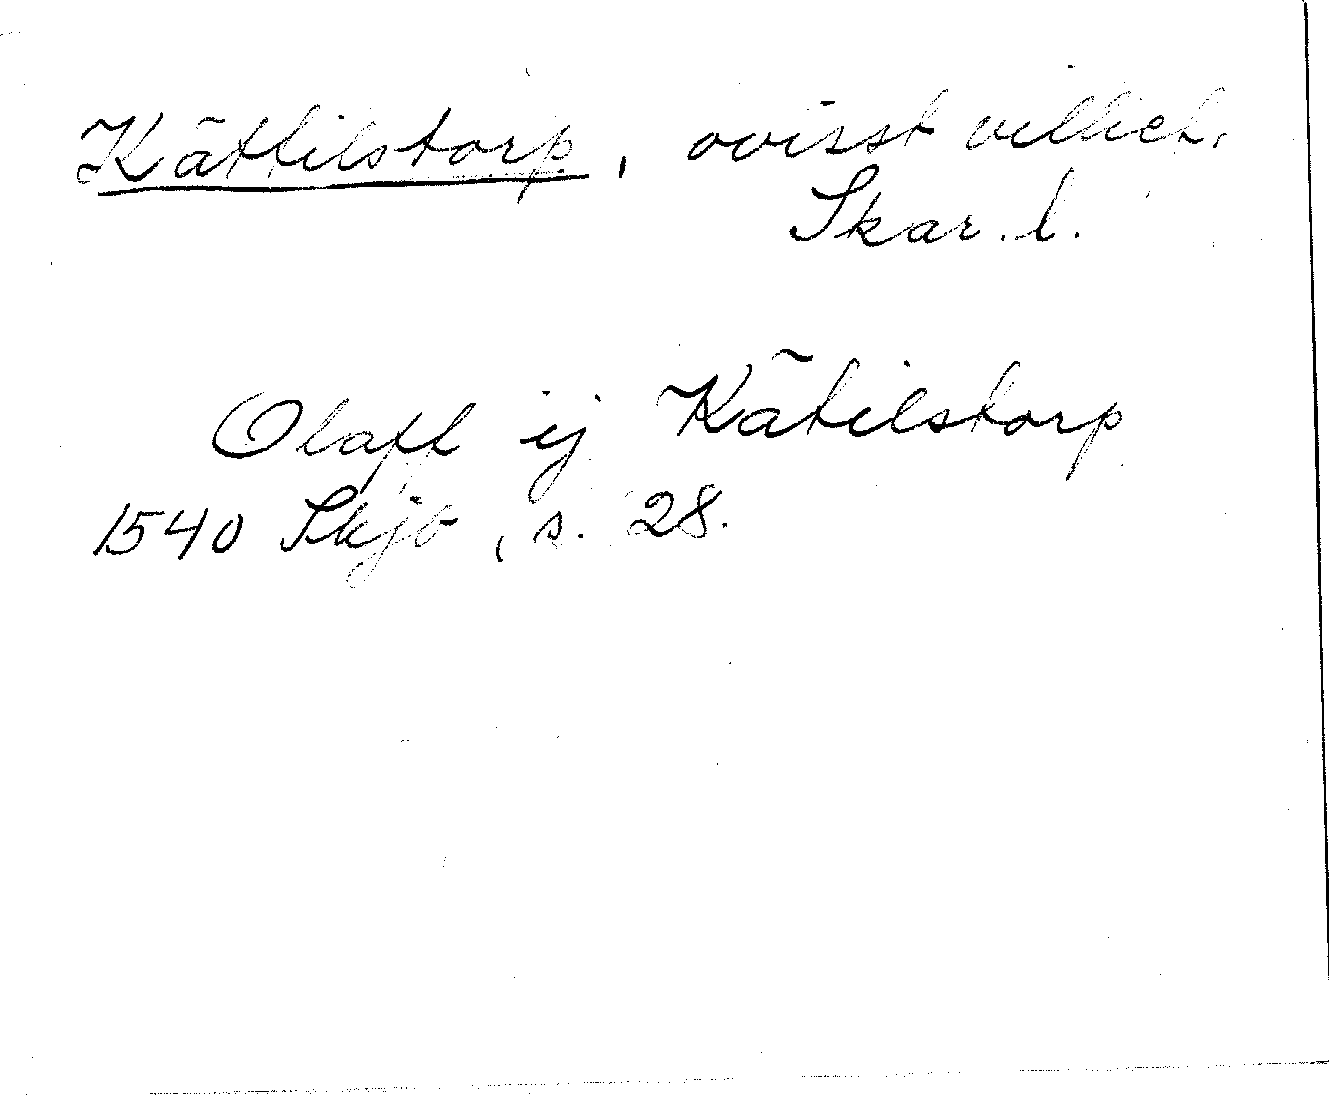 Kättilstorp, ovisst vilket,
Skar. l.
Olaff ij Kätilstorp
1540 Skjb, s. 28.